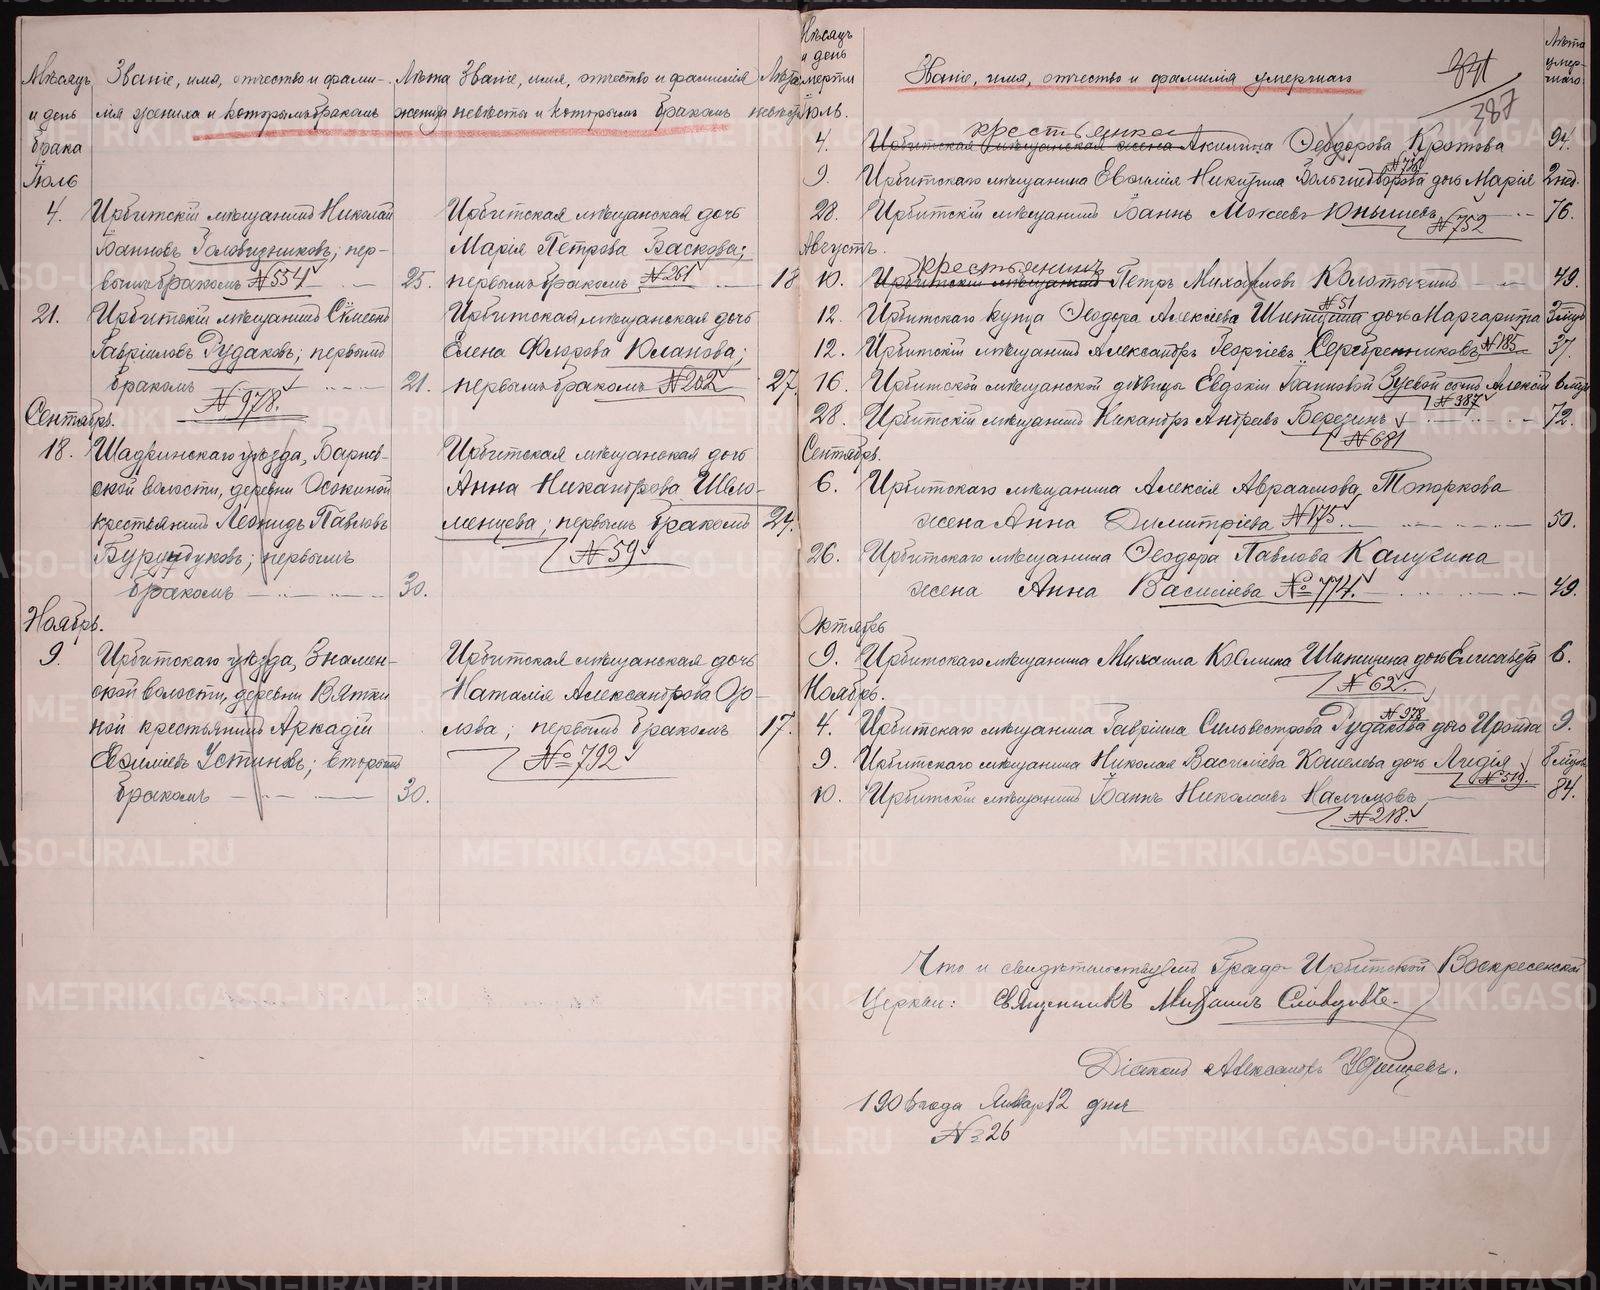 Мѣсяцъ и день брака
Званіе, имя, отчество и фамилія жениха и которымъ бракомъ
Лѣта жениха
Званіе, имя, отчество и фамилія невѣсты и которымъ бракомъ
Лѣта невѣсты
Іюль
4. Ирбитскій мѣщанинъ Николай
Іоанновъ Головизниковъ; пер-
вымъ бракомъ №554 25.
Ирбитская мѣщанская дочь
Марія Петрова Васкова;
первымъ бракомъ №261 18
21. Ирбитскій мѣщанинъ Симеонъ
Гавріиловъ Рудаковъ; первымъ
бракомъ 21.
№978.
Ирбитская мѣщанская дочь
Елена Флорова Юланова;
первымъ бракомъ №202 27
Сентябрь.
18. Шадринскаго уѣзда, Барнев-
ской волости, деревни Осокиной
крестьянинъ Леонидъ Павловъ
Бурундуковъ; первымъ
бракомъ 30.
Ирбитская мѣщанская дочь
Анна Никандрова Шело-
менцева; первымъ бракомъ 24.
№59
Ноябрь.
9. Ирбитскаго уѣзда, Знамен-
ской волости, деревни Вятки-
ной крестьянинъ Аркадій
Евѳиміевъ Устиновъ; вторымъ
бракомъ 30.
Ирбитская мѣщанская дочь
Наталія Александрова Ор-
лова; первымъ бракомъ 17.
№792
Мѣсяцъ и день смерти
Званіе, имя, отчество и фамилія умершаго
Лѣта умер-шаго
387
Іюль.
крестьянка
4. Ирбитская мѣщанская жена Акилина Ѳеодорова Кротова 94.
9. Ирбитскаго мѣщанина Евѳимія Никитина Вологнедворова дочь Марія 2 нед.
28. Ирбитскій мѣщанинъ Іоаннъ Моисеевъ Юнышевъ 76.
№752
Августъ.
крестьянинъ
10. Ирбитскій мѣщанинъ Петръ Михаиловъ Колотыгинъ 49.
№51
12. Ирбитскаго купца Ѳеодора Алексіева Шитицына дочь Маргарита
12. Ирбитскій мѣщанинъ Александръ Георгіевъ Серебренниковъ №185 37.
16. Ирбитской мѣщанской дѣвицы Евдокіи Іоанновой Зуевой сынъ Алексій
№387
28. Ирбитскій мѣщанинъ Никандръ Андреевъ Березинъ 72.
№681
Сентябрь.
6. Ирбитскаго мѣщанина Алексія Авраамова Топоркова
жена Анна Димитріева №175 50.
26. Ирбитскаго мѣщанина Ѳеодора Павлова Калугина
жена Анна Василіева №774. 49.
Октябрь
9. Ирбитскаго мѣщанина Михаила Козмина Шипицина дочь Елисавета 6.
№62.
Ноябрь.
№978
4. Ирбитскаго мѣщанина Гавріила Сильвестрова Рудакова дочь Ироида 9.
9. Ирбитскаго мѣщанина Николая Василіева Кошелева дочь Лидія
№519.
10. Ирбитскій мѣщанинъ Іоаннъ Николаевъ Налимовъ 84.
№218.
Что и свидѣтельствуемъ Градо-Ирбитской Воскресенской
Церкви: Священникъ Михаилъ Словцовъ.
Діаконъ Александръ Удинцевъ.
1906 года Января 12 дня
№ 26
METRIKI.GASO-URAL.RU